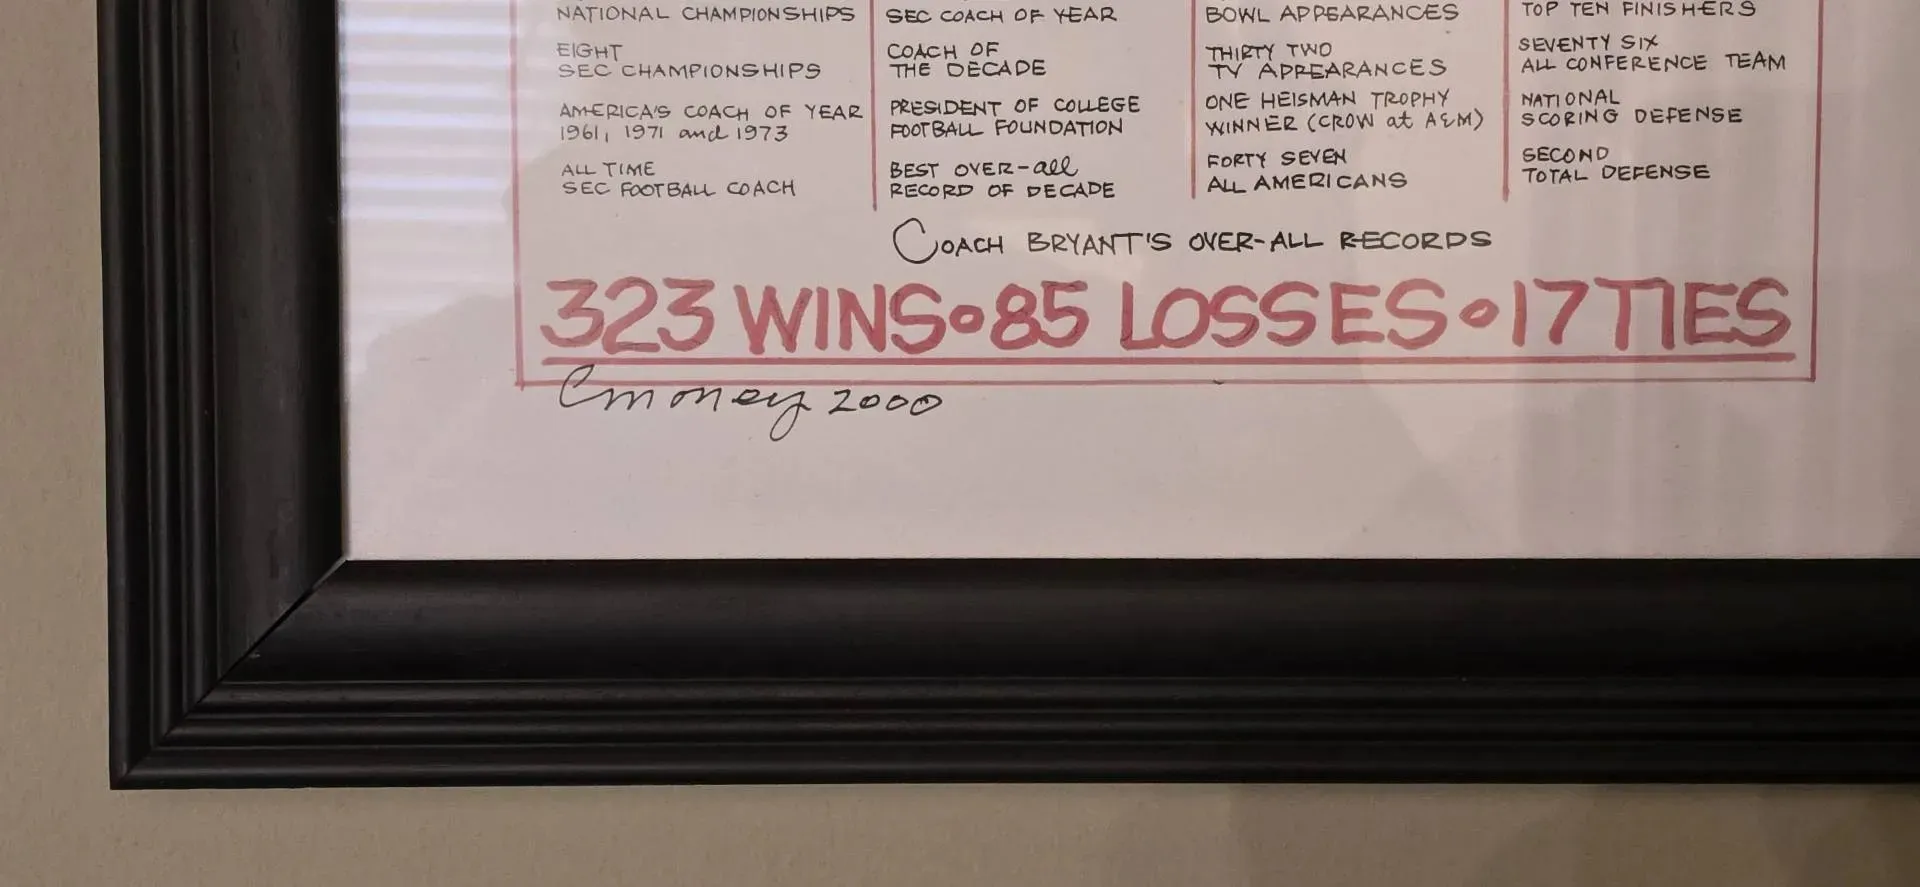 NATIONAL CHAMPIONSHIPS
EIGHT
SEC CHAMPIONSHIPS
AMERICA'S COACH OF YEAR
1961, 1971 and 1973
ALL TIME
SEC FOOTBALL COACH
SEC COACH OF YEAR
COACH OF
THE DECADE
PRESIDENT OF COLLEGE
FOOTBALL FOUNDATION
BEST OVER-all
RECORD OF DECADE
BOWL APPEARANCES
THIRTY TWO
TV APPEARANCES
ONE HEISMAN TROPHY
WINNER (CROW at A&M)
FORTY SEVEN
ALL AMERICANS
TOP TEN FINISHERS
SEVENTY SIX
ALL CONFERENCE TEAM
NATIONAL
SCORING DEFENSE
SECOND
TOTAL DEFENSE
COACH BRYANT'S OVER-ALL RECORDS
323 WINS•85 LOSSES•17 TIES
Cmoney 2000